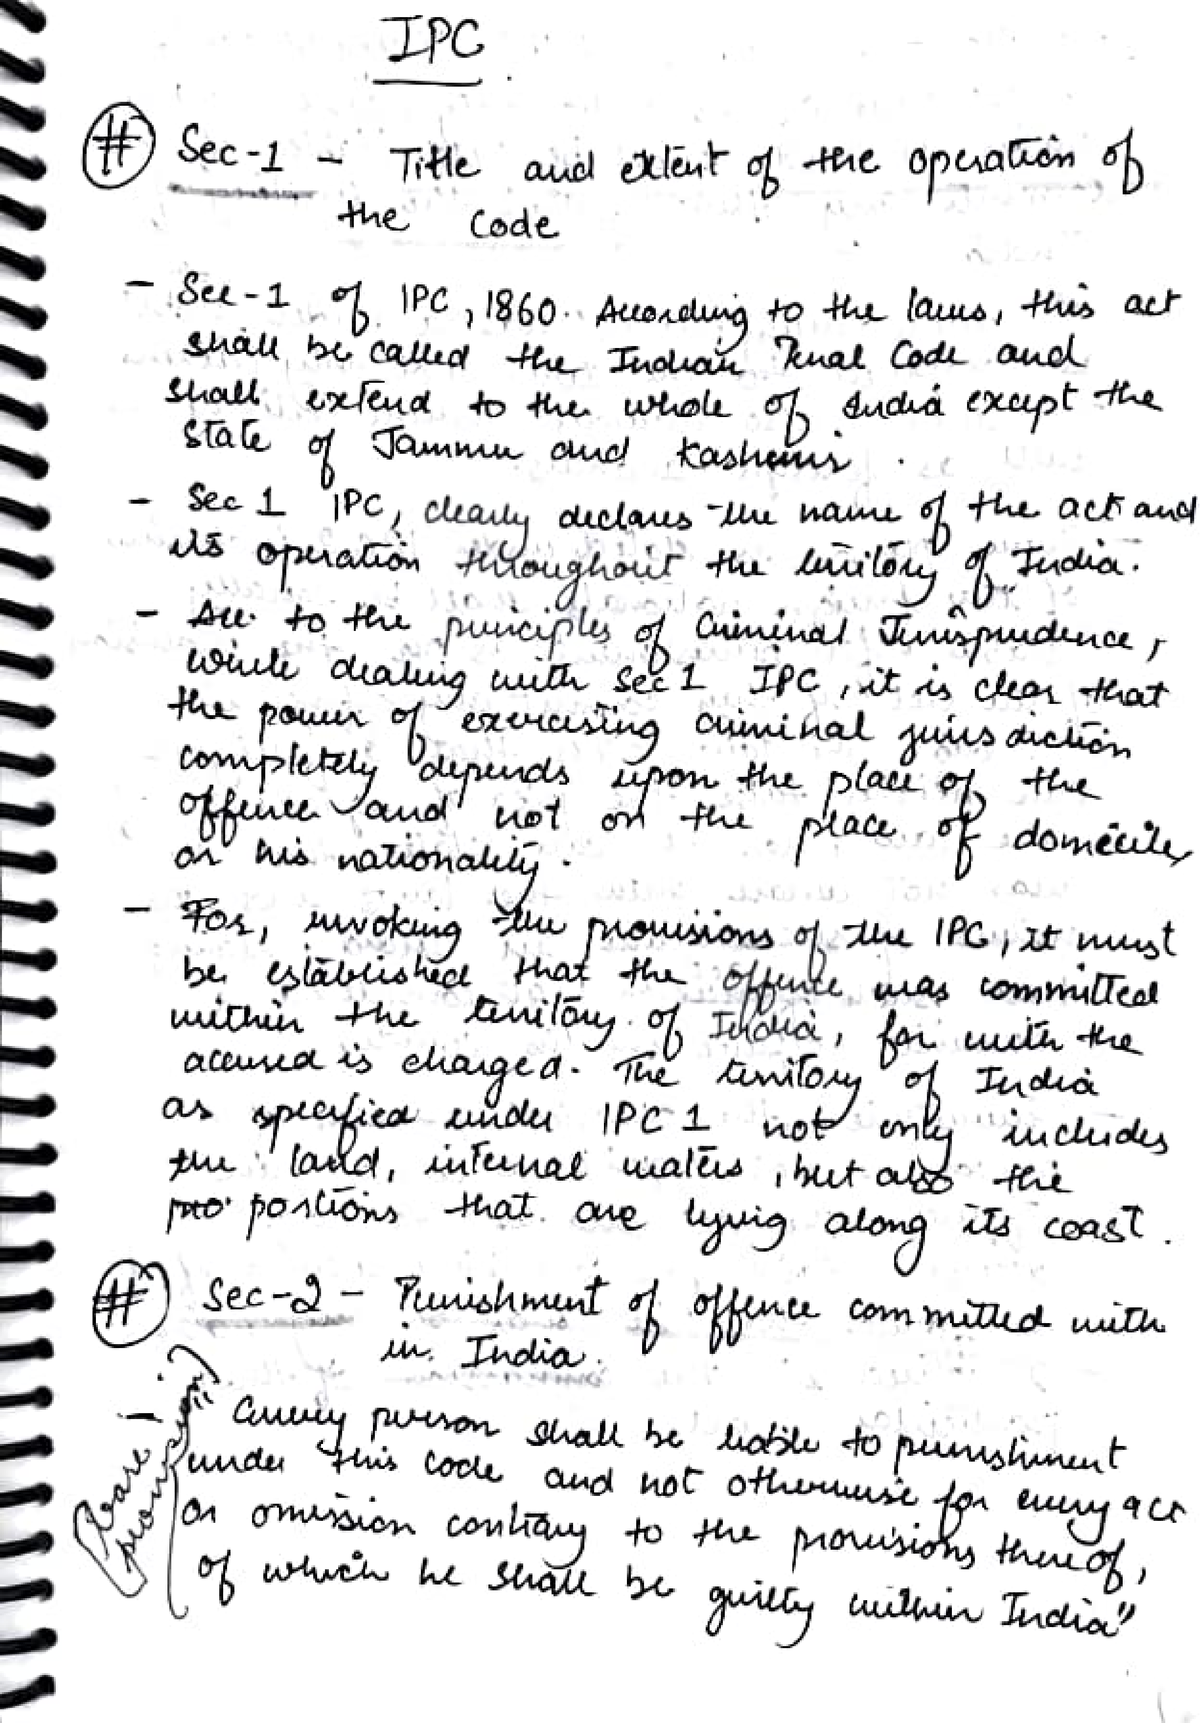 IPC
# Sec-1 - Title and extent of the operation of
the Code
- Sec-1 of IPC, 1860. According to the laws, this act
shall be called the Indian Penal Code and
shall extend to the whole of India except the
state of Jammu and Kashmir.
- Sec 1 IPC, clearly declares the name of the act and
its operation throughout the territory of India.
- Acc. to the principles of Criminal Jurisprudence,
while dealing with Sec 1 IPC, it is clear that
the power of exercising criminal jurisdiction
completely depends upon the place of the
offence and not on the place of domicile,
or his nationality.
- For, invoking the provisions of the IPC, it must
be established that the offence was committed
within the territory of India, for with the
accused is charged. The territory of India
as specified under IPC 1 not only includes
the land, internal waters, but also the
portions that are lying along its coast.
# Sec-2 - Punishment of offence committed with
in India.
(Bare provision)
- "Every person shall be liable to punishment
under this code and not otherwise for every act
or omission contrary to the provisions thereof,
of which he shall be guilty within India"